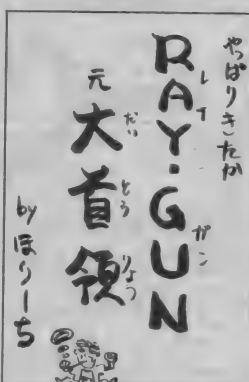 やっぱりきたか
RAY・GUN
レイガン
元
大首領
だいとうりょう
by ほりーち